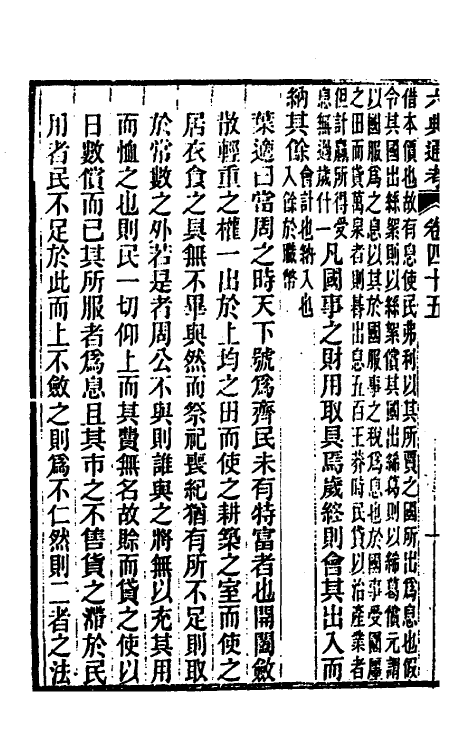 六典通考　卷四十五
借本價也故有息使民弗利以其所賈之國所出為息也假
令其國出絲絮則以絲絮償其國出絺葛則以絺葛償元謂
以國服為之息以其於國服事之稅為息也於國事受園廛
之田而貸萬泉者則朞出息五百王莽時民貸以治產業者
但計贏所得受
息無過歲什一凡國事之財用取具焉歲終則會其出入而
納其餘會計也納入也
入餘於職幣
葉適曰當周之時天下號為齊民未有特富者也開闔斂
散輕重之權一出於上均之田而使之耕築之室而使之
居衣食之具無不畢與然而祭祀喪紀猶有所不足則取
於常數之外若是者周公不與則誰與之將無以充其用
而恤之也則民一切仰上而其費無名故賒而貸之使以
日數償而已其所服者為息且其市之不售貨之滯於民
用者民不足於此而上不斂之則為不仁然則二者之法